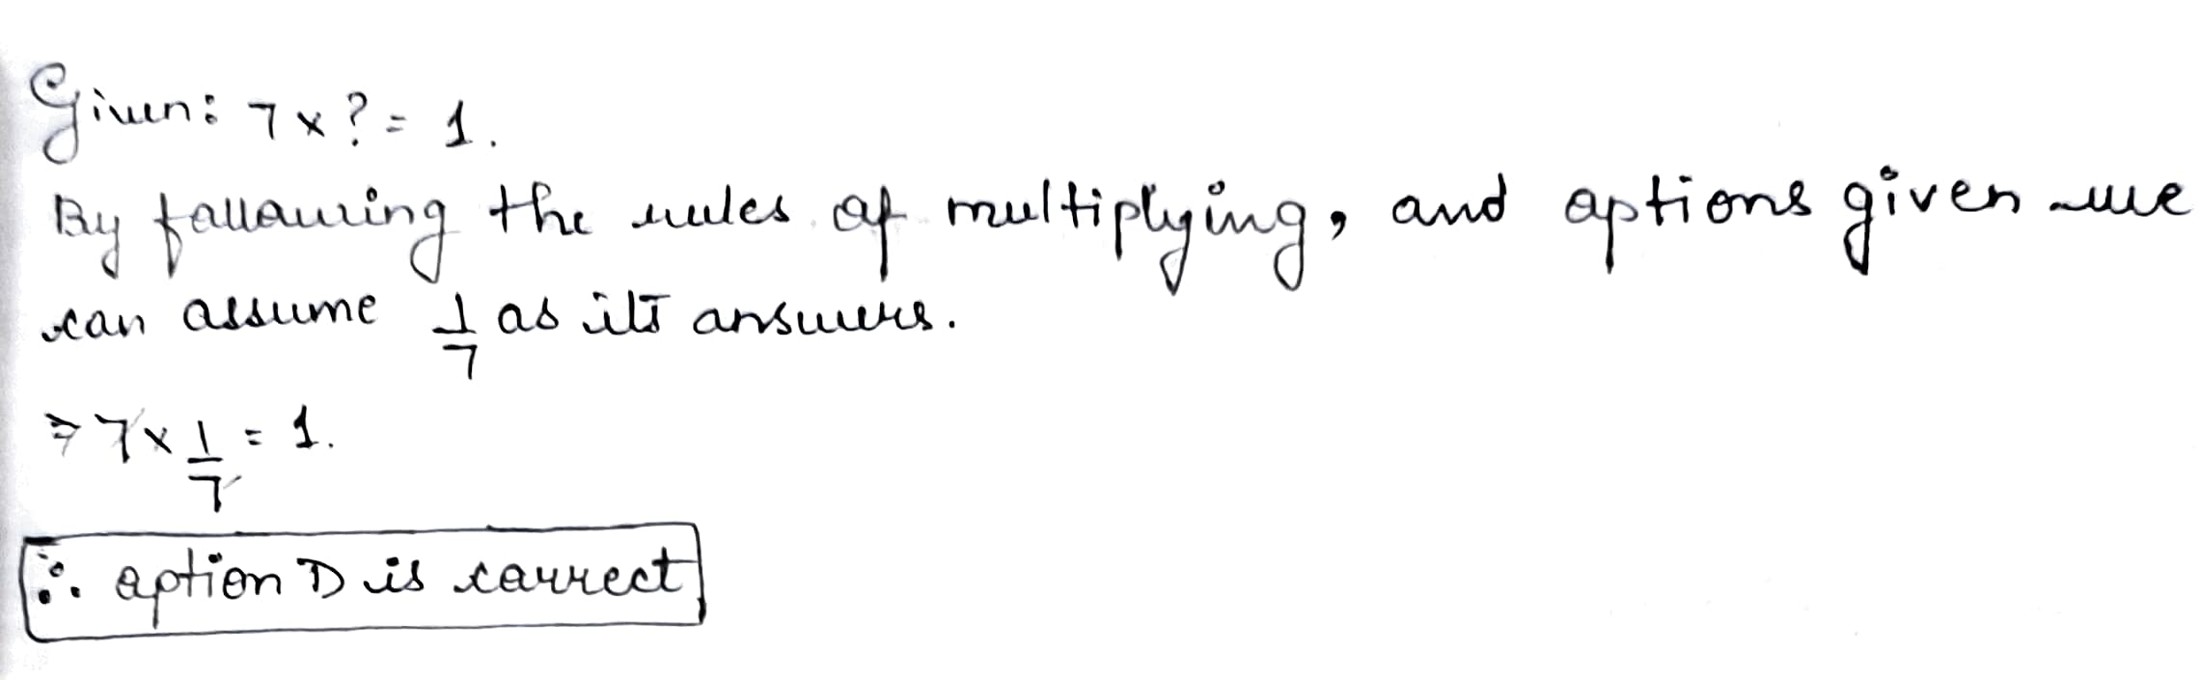 Given: 7 x ? = 1.
By following the rules of multiplying, and options given we
can assume 1/7 as its answers.
⇒ 7 x 1/7 = 1.
∴ option D is correct